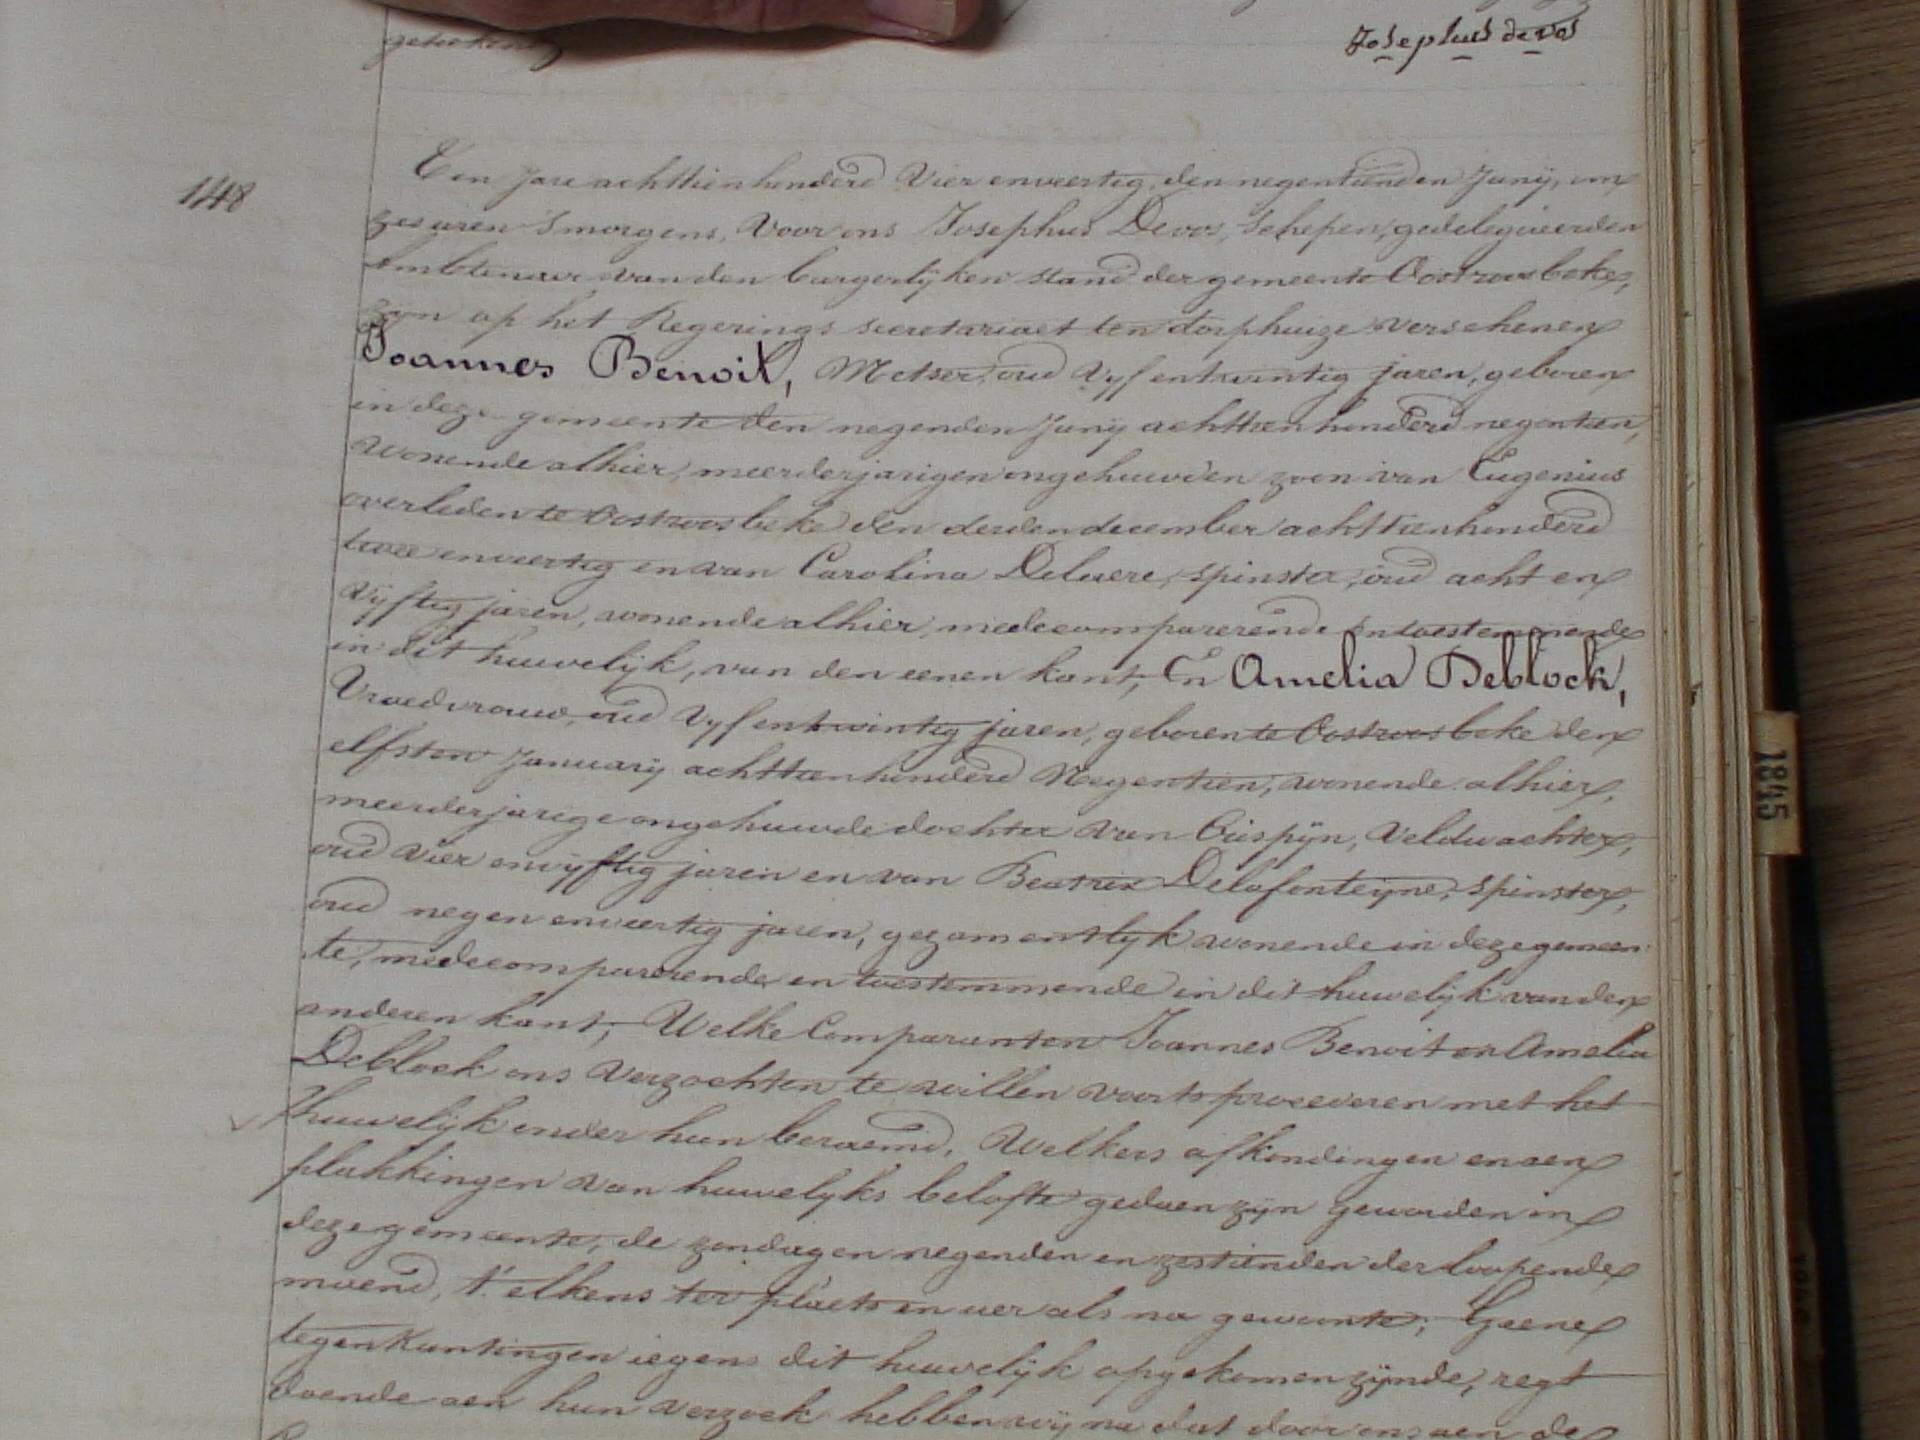 geteekend
Josephus devos
148
Ten Jare achttienhonderd Vier enveertig, den negentienden Junij, om
zes uren 'Smorgens, Voor ons Josephus Devos, Schepen, gedelegueerden
Ambtenaer van den burgerlijken stand der gemeente Oostroosbeke,
zijn op het Regerings secretariaet ten dorphuize verschenen
Joannes Benoit, Metser, oud Vyf entwintig jaren, geboren
in deze gemeente den negenden Junij achttienhonderd negentien,
wonende alhier, meerderjarigen ongehuwden zoon van Eugenius
overleden te Oostroosbeke den derden december achttienhonderd
twee enveertig en van Carolina Delaere, spinster, oud acht en
vyftig jaren, wonende alhier, medecomparerende en toestemmende
in dit huwelijk, van den eenen kant; En Amelia Deblock,
Vroedvrouw, oud Vyf entwintig jaren, geboren te Oostroosbeke den
elfsten January achttienhonderd Negentien, wonende alhier,
meerderjarige ongehuwde dochter van Crispijn, Veldwachter,
oud vier envyftig jaren en van Beatrix Delafonteijne, spinster,
oud negen enveertig jaren, gezamentlyk wonende in deze gemeen
te, medecomparerende en toestemmende in dit huwelijk van den
anderen kant; Welke Comparanten Joannes Benoit en Amelia
Deblock ons Verzochten te willen voorts procederen met het
huwelijk onder hun beraemd, Welkers afkondingen en aen
plakkingen van huwelyks belofte gedaen zijn geworden in
deze gemeente, de zondagen negenden en zestienden der loopende
maend, t'elkens ter plaets en uer als na gewoonte; Geene
tegenkantingen iegens dit huwelijk opgekomen zijnde, regt
doende aen hun verzoek hebben wij na dat door ons aen de
1845